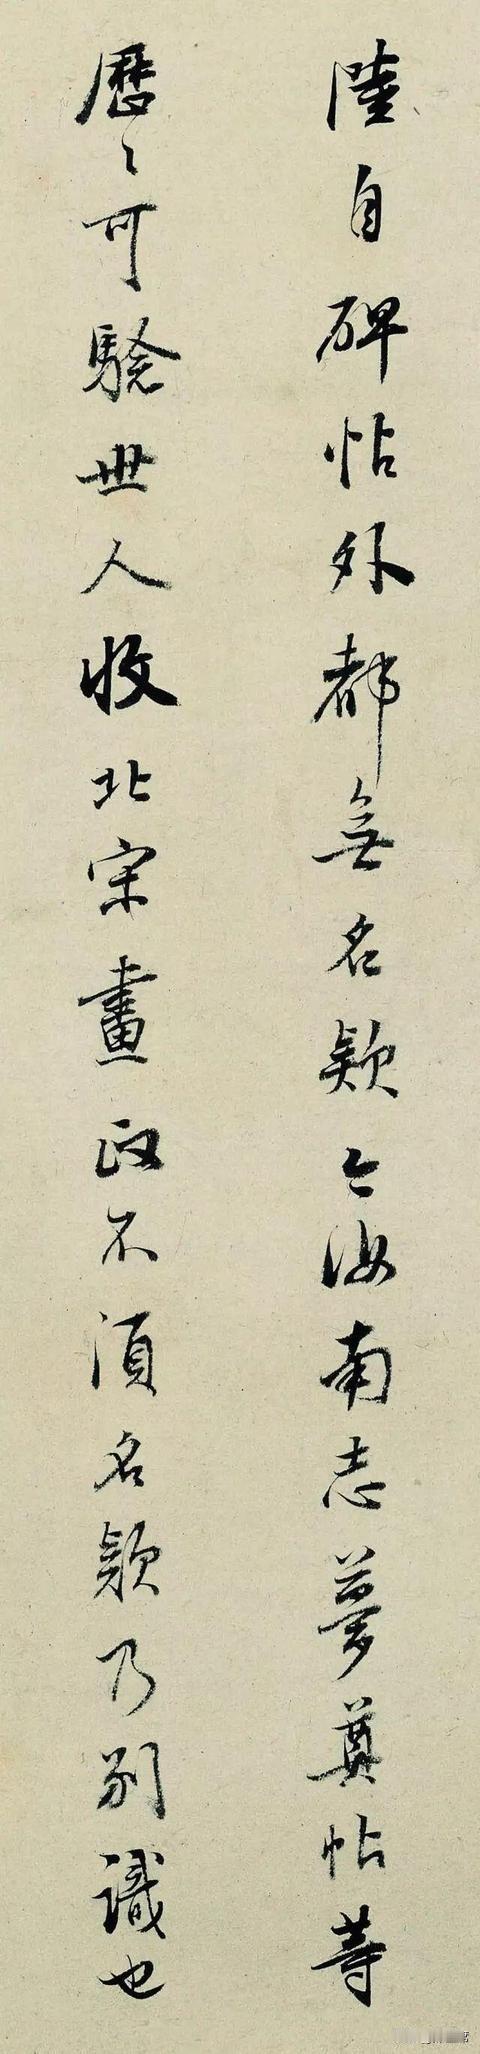 陸自碑帖外都無名款今汝南志夢奠帖等
歷〻可驗世人收北宋畫政不須名款乃別識也